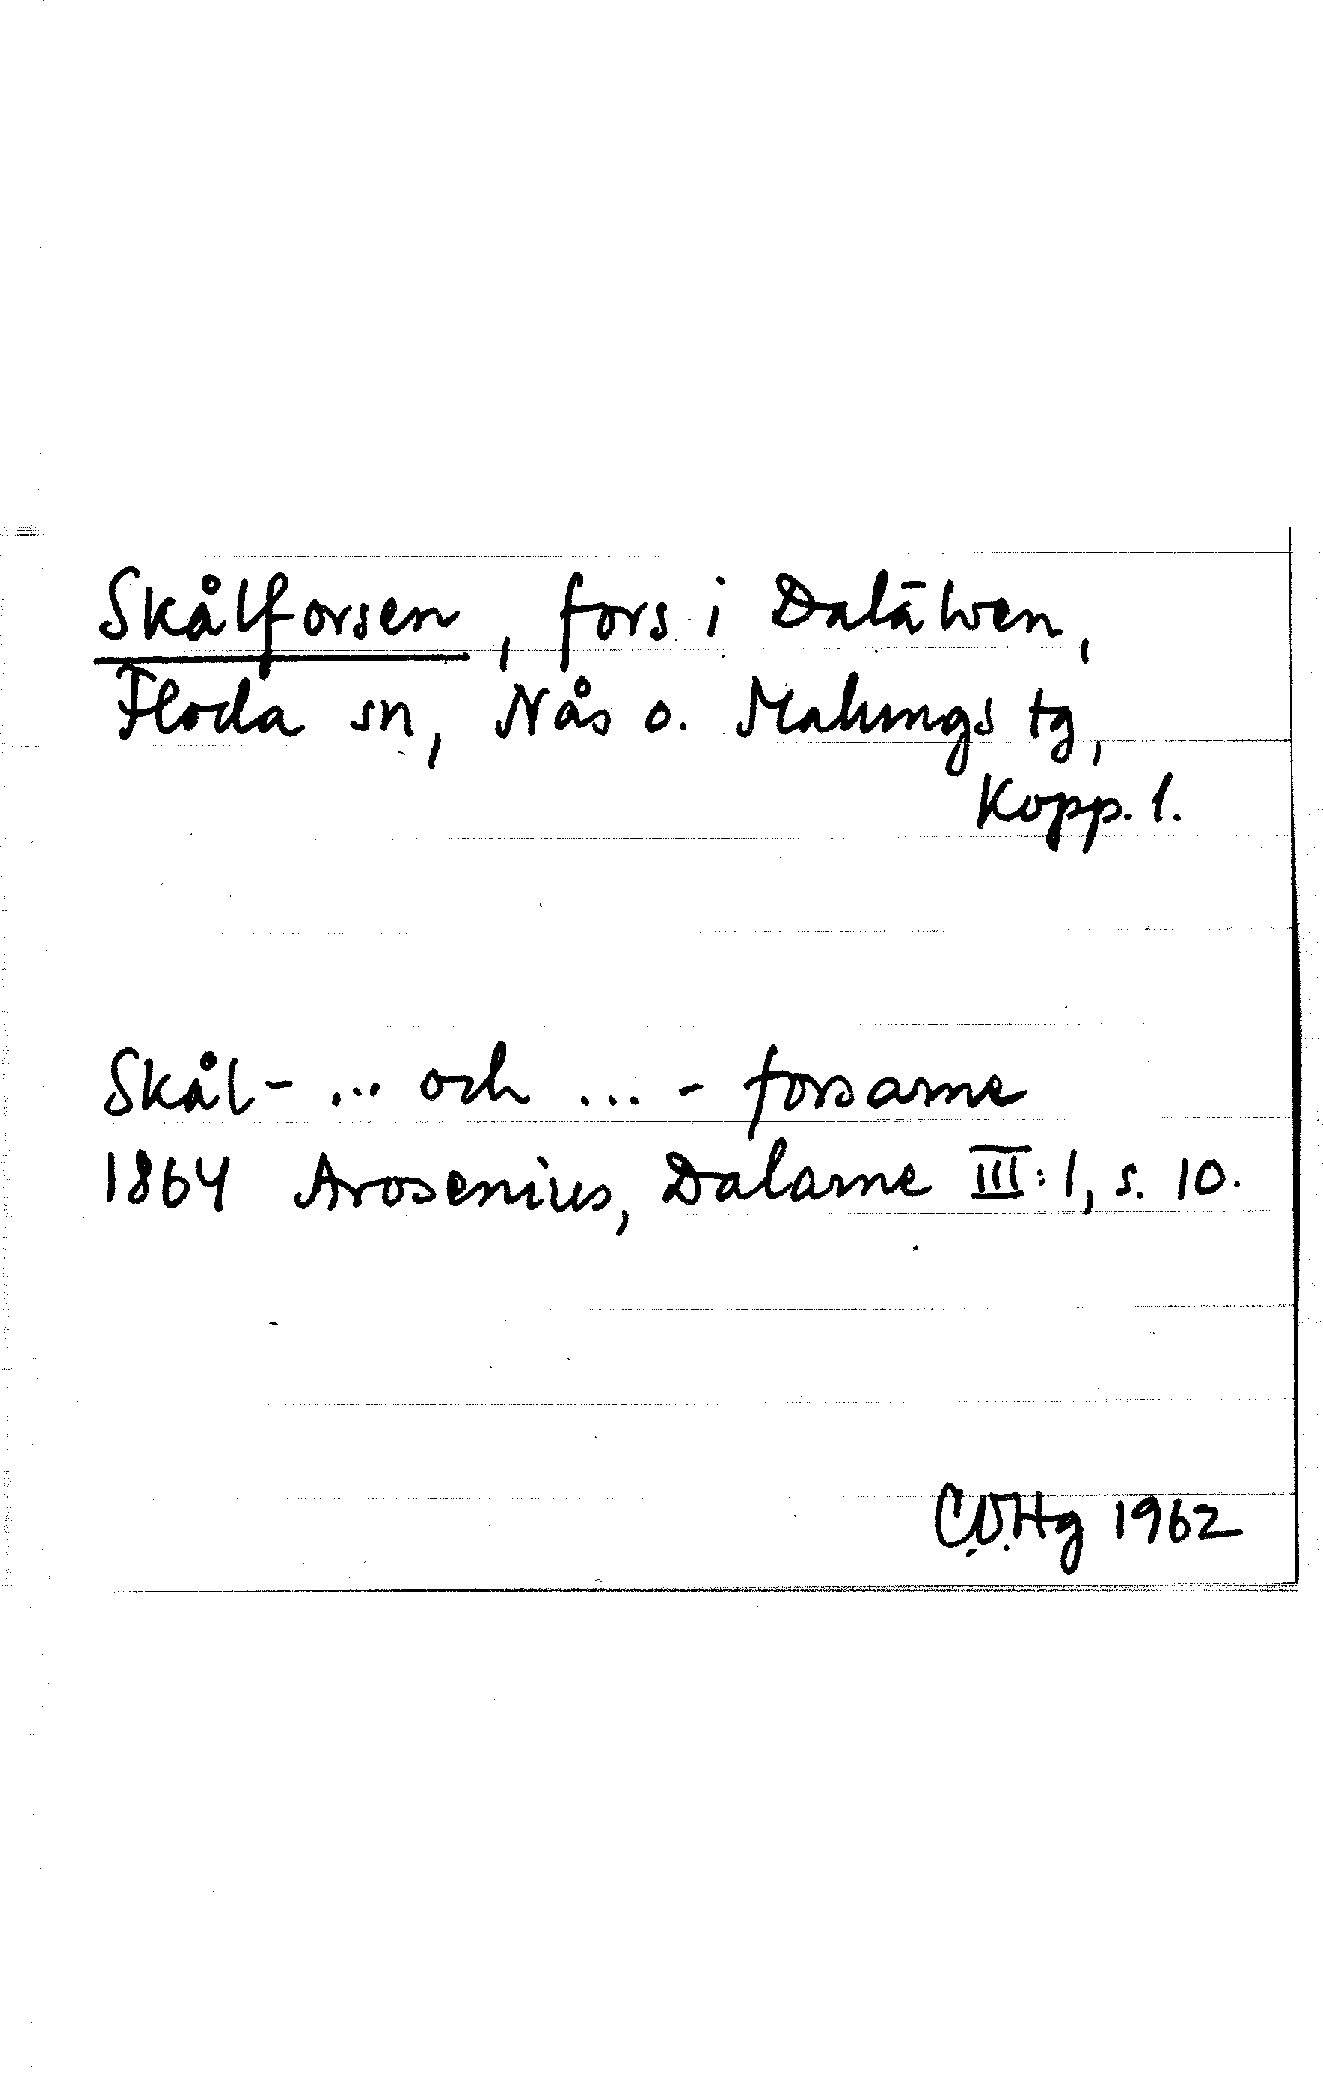 Skålforsen, fors i Dalälven,
Floda sn, Nås o. Malungs tg,
Kopp. l.
Skål- ... och ... - forsarne
1864 Arosenius, Dalarne III:1, s. 10.
C.O.Hg 1962